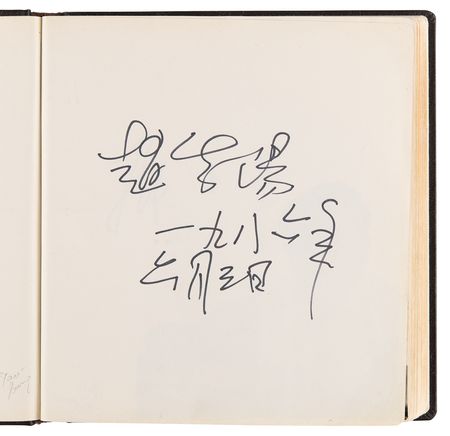 趙紫陽
一九八六年
六月三日